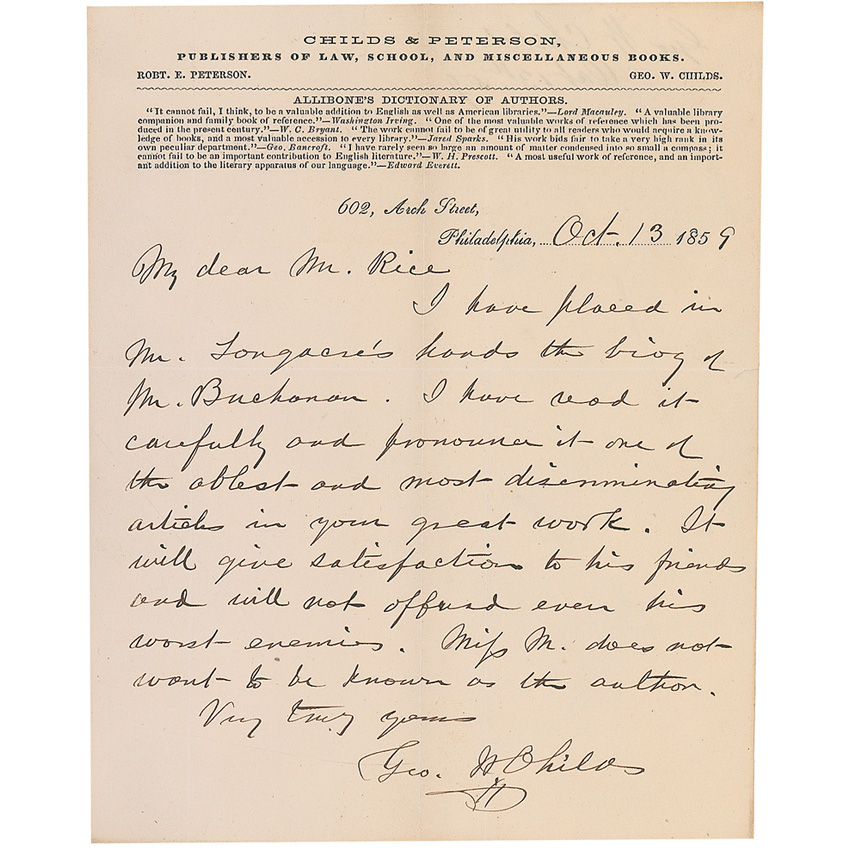 CHILDS & PETERSON,
PUBLISHERS OF LAW, SCHOOL, AND MISCELLANEOUS BOOKS.
ROBT. E. PETERSON. GEO. W. CHILDS.
ALLIBONE'S DICTIONARY OF AUTHORS.
"It cannot fail, I think, to be a valuable addition to English as well as American libraries."—Lord Macaulay. "A valuable library
companion and family book of reference."—Washington Irving. "One of the most valuable works of reference which has been pro-
duced in the present century."—W. C. Bryant. "The work cannot fail to be of great utility to all readers who would acquire a know-
ledge of books, and a most valuable accession to every library."—Jared Sparks. "His work bids fair to take a very high rank in its
own peculiar department."—Geo. Bancroft. "I have rarely seen so large an amount of matter condensed into so small a compass; it
cannot fail to be an important contribution to English literature."—W. H. Prescott. "A most useful work of reference, and an import-
ant addition to the literary apparatus of our language."—Edward Everett.
602, Arch Street,
Philadelphia, Oct. 13 1859
My dear Mr. Rice
I have placed in
Mr. Longacre's hands the biog of
Mr. Buchanan. I have read it
carefully and pronounce it one of
the ablest and most discriminating
articles in your great work. It
will give satisfaction to his friends
and will not offend even his
worst enemies. Miss M. does not
want to be known as the author.
Very truly yours
Geo. W Childs